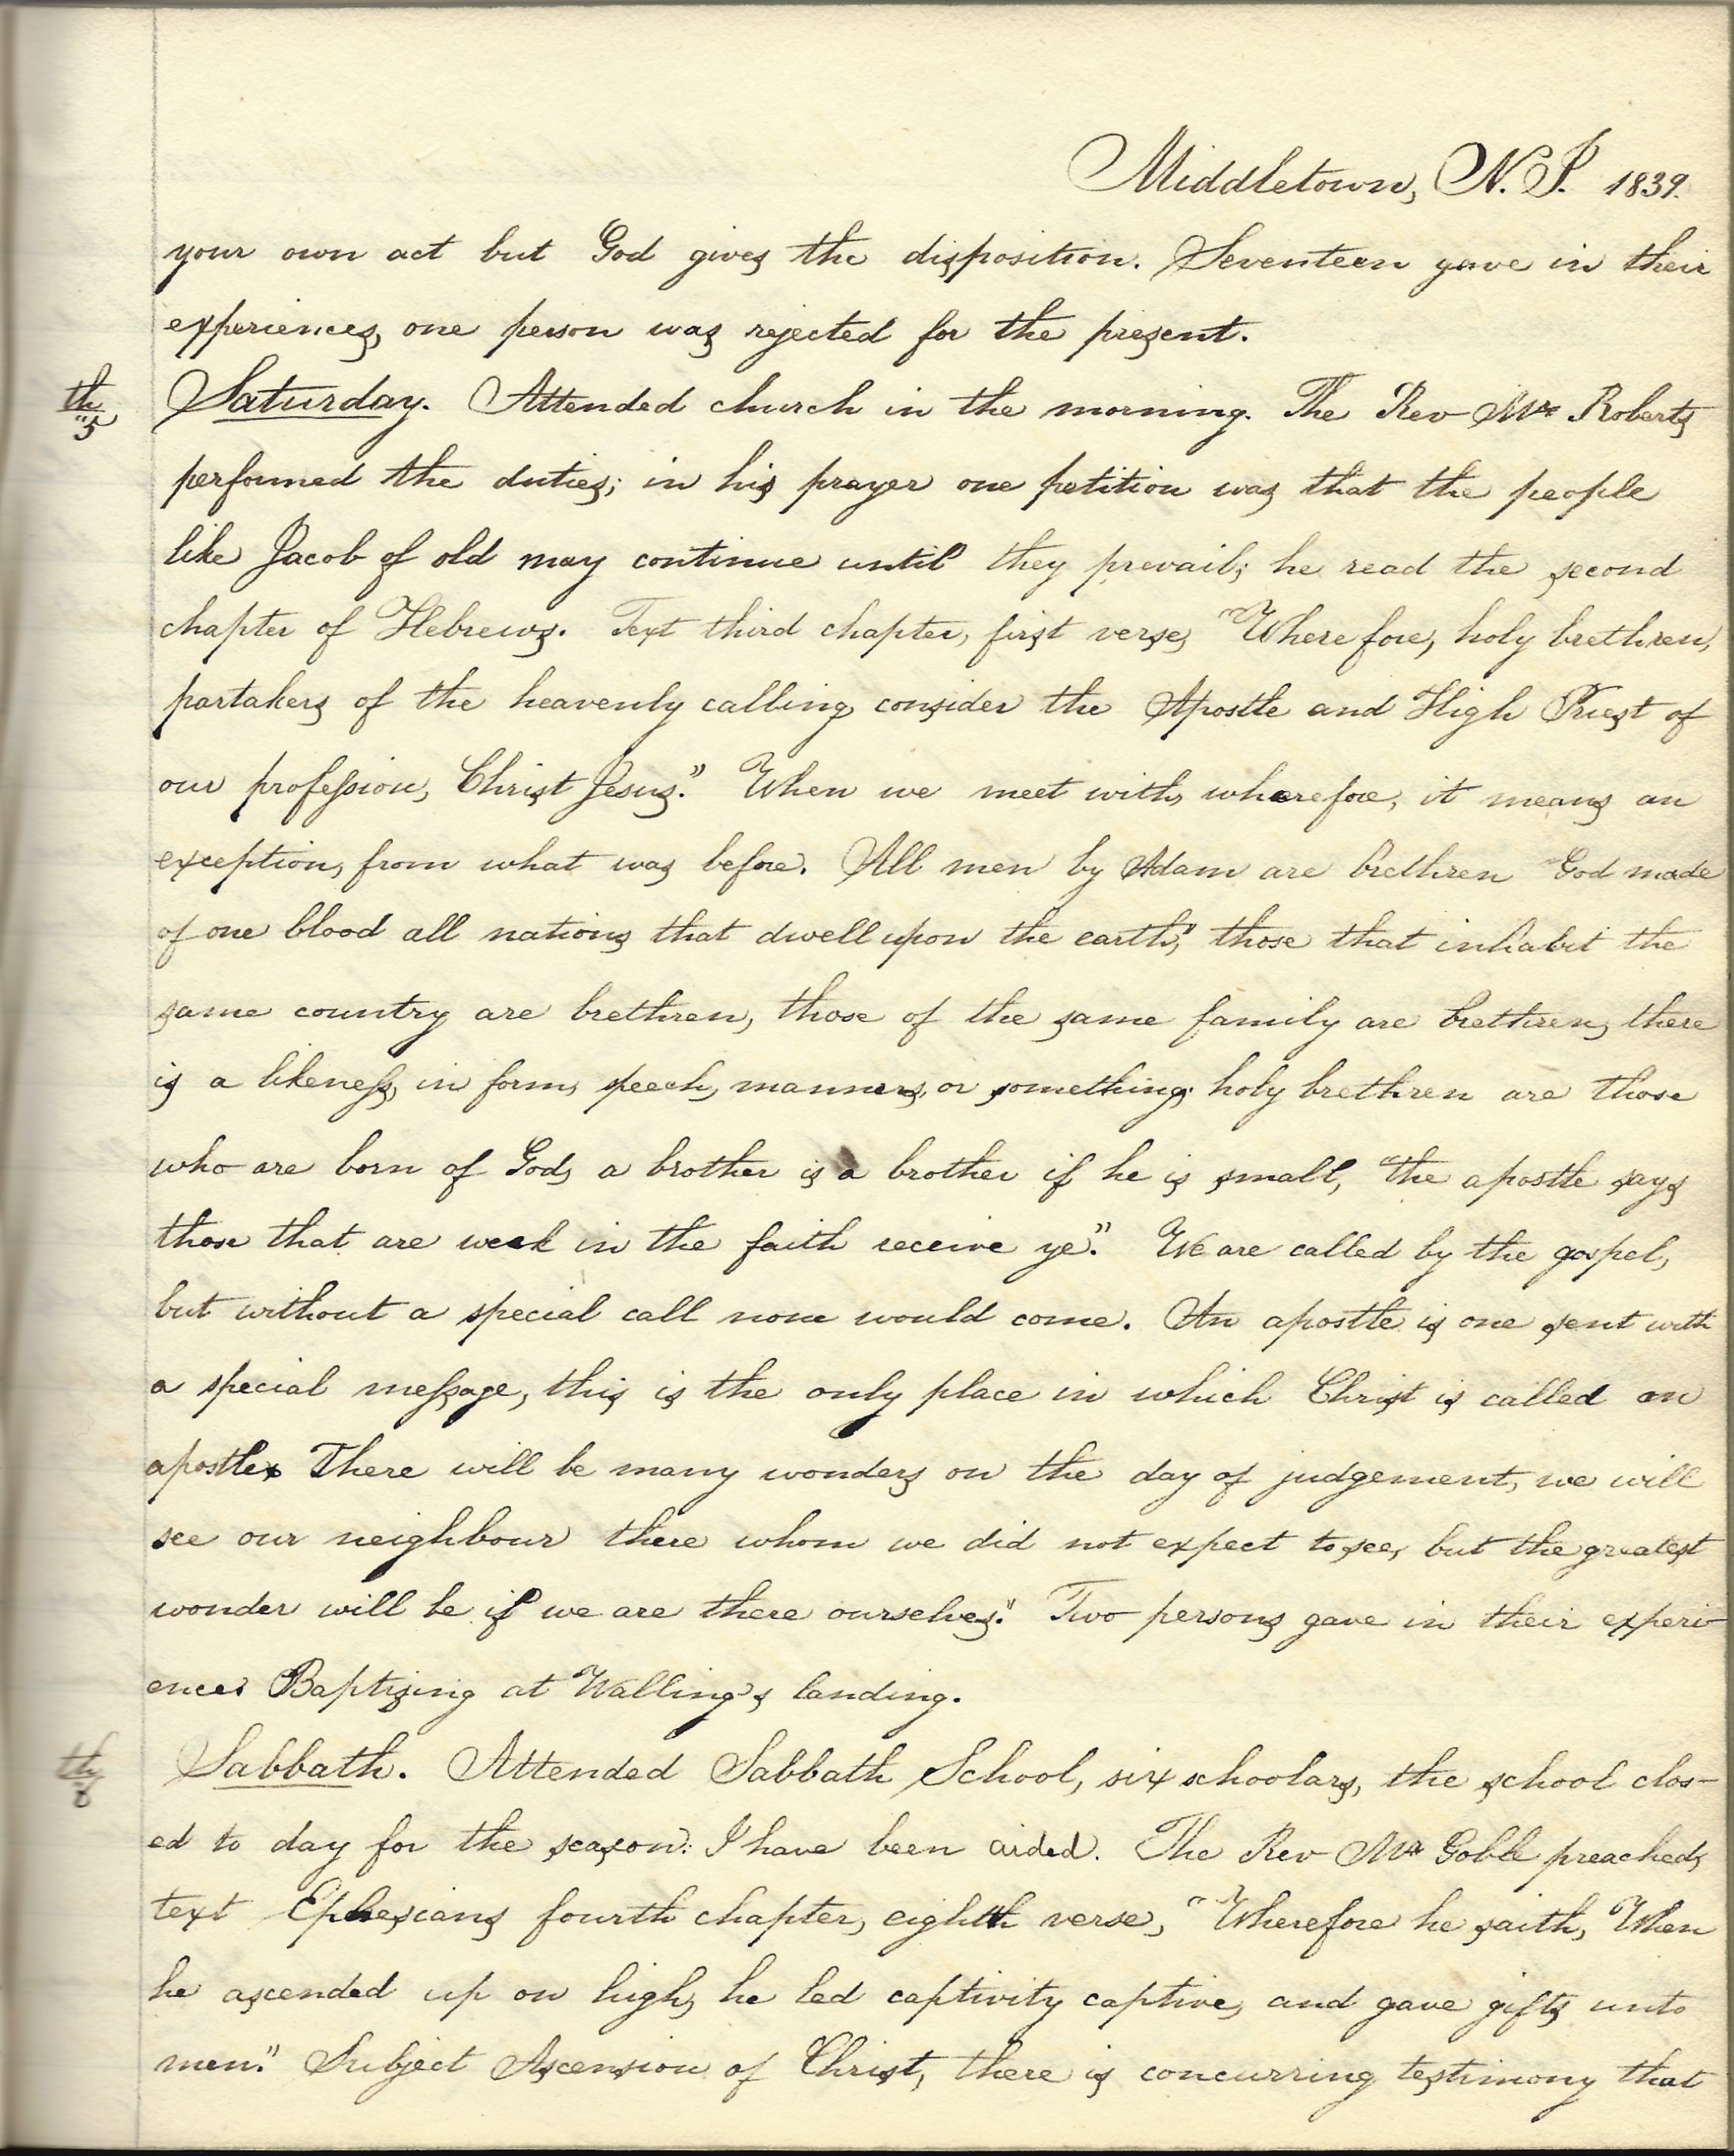 Middletown, N. J. 1839.
your own act but God gives the disposition. Seventeen gave in their
experiences, one person was rejected for the present.
th
"5
Saturday. Attended church in the morning. The Rev Mr Roberts
performed the duties; in his prayer one petition was that the people
like Jacob of old may continue until they prevail; he read the second
chapter of Hebrews. Text third chapter, first verse, "Wherefore, holy brethren,
partakers of the heavenly calling, consider the Apostle and High Priest of
our profession, Christ Jesus." When we meet with, wherefore, it means an
exception, from what was before. All men by Adam are brethren "God made
of one blood all nations that dwell upon the earth," those that inhabit the
same country are brethren, those of the same family are brethren, there
is a likeness, in form, speech, manners, or something; holy brethren are those
who are born of God, a brother is a brother if he is small, "the apostle says
those that are weak in the faith receive ye." We are called by the gospel,
but without a special call none would come. An apostle is one sent with
a special message, this is the only place in which Christ is called an
apostle. There will be many wonders on the day of judgement, we will
see our neighbour there whom we did not expect to see, but the greatest
wonder will be if we are there ourselves." Two persons gave in their experi-
ences Baptizing at Walling's landing.
th
8
Sabbath. Attended Sabbath School, six schoolars, the school clos-
ed to day for the season: I have been aided. The Rev Mr Goble preached,
text Ephesians fourth chapter, eighth verse, "Wherefore he saith, When
he ascended up on high, he led captivity captive, and gave gifts unto
men." Subject Ascension of Christ, there is concurring testimony that